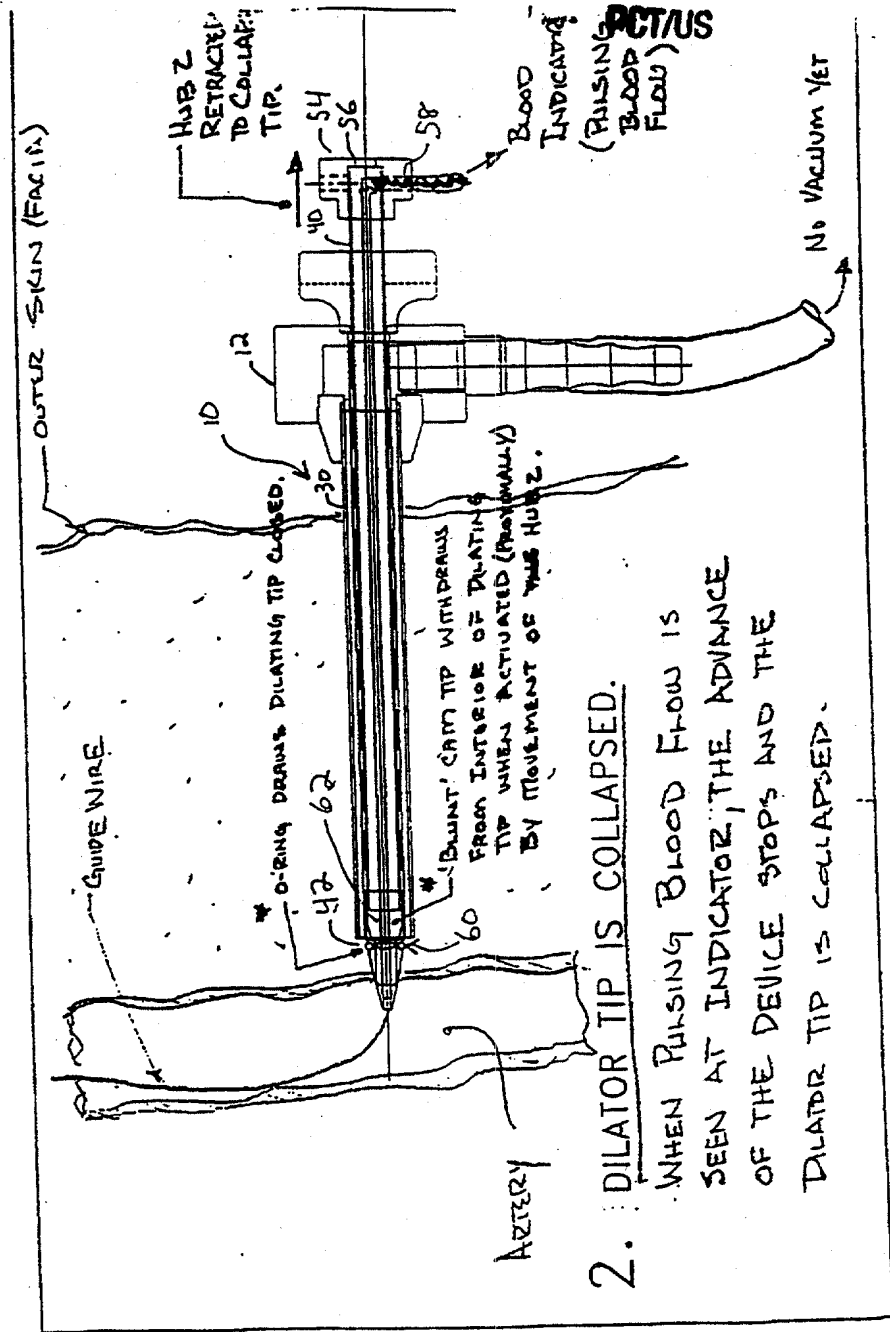 PCT/US
OUTER SKIN (FACIA)
HUB 2
RETRACTED
TO COLLAPSE
TIP.
54
56
58
40
12
10
30
BLOOD
INDICATOR
(PULSING
BLOOD
FLOW)
NO VACUUM YET
GUIDE WIRE
* O-RING DRAWS DILATING TIP CLOSED.
62
42
60
* 'BLUNT' CAM TIP WITHDRAWS
FROM INTERIOR OF DILATING
TIP WHEN ACTIVATED (PROXIMALLY)
BY MOVEMENT OF THE HUB 2.
ARTERY
2. DILATOR TIP IS COLLAPSED.
WHEN PULSING BLOOD FLOW IS
SEEN AT INDICATOR, THE ADVANCE
OF THE DEVICE STOPS AND THE
DILATOR TIP IS COLLAPSED.